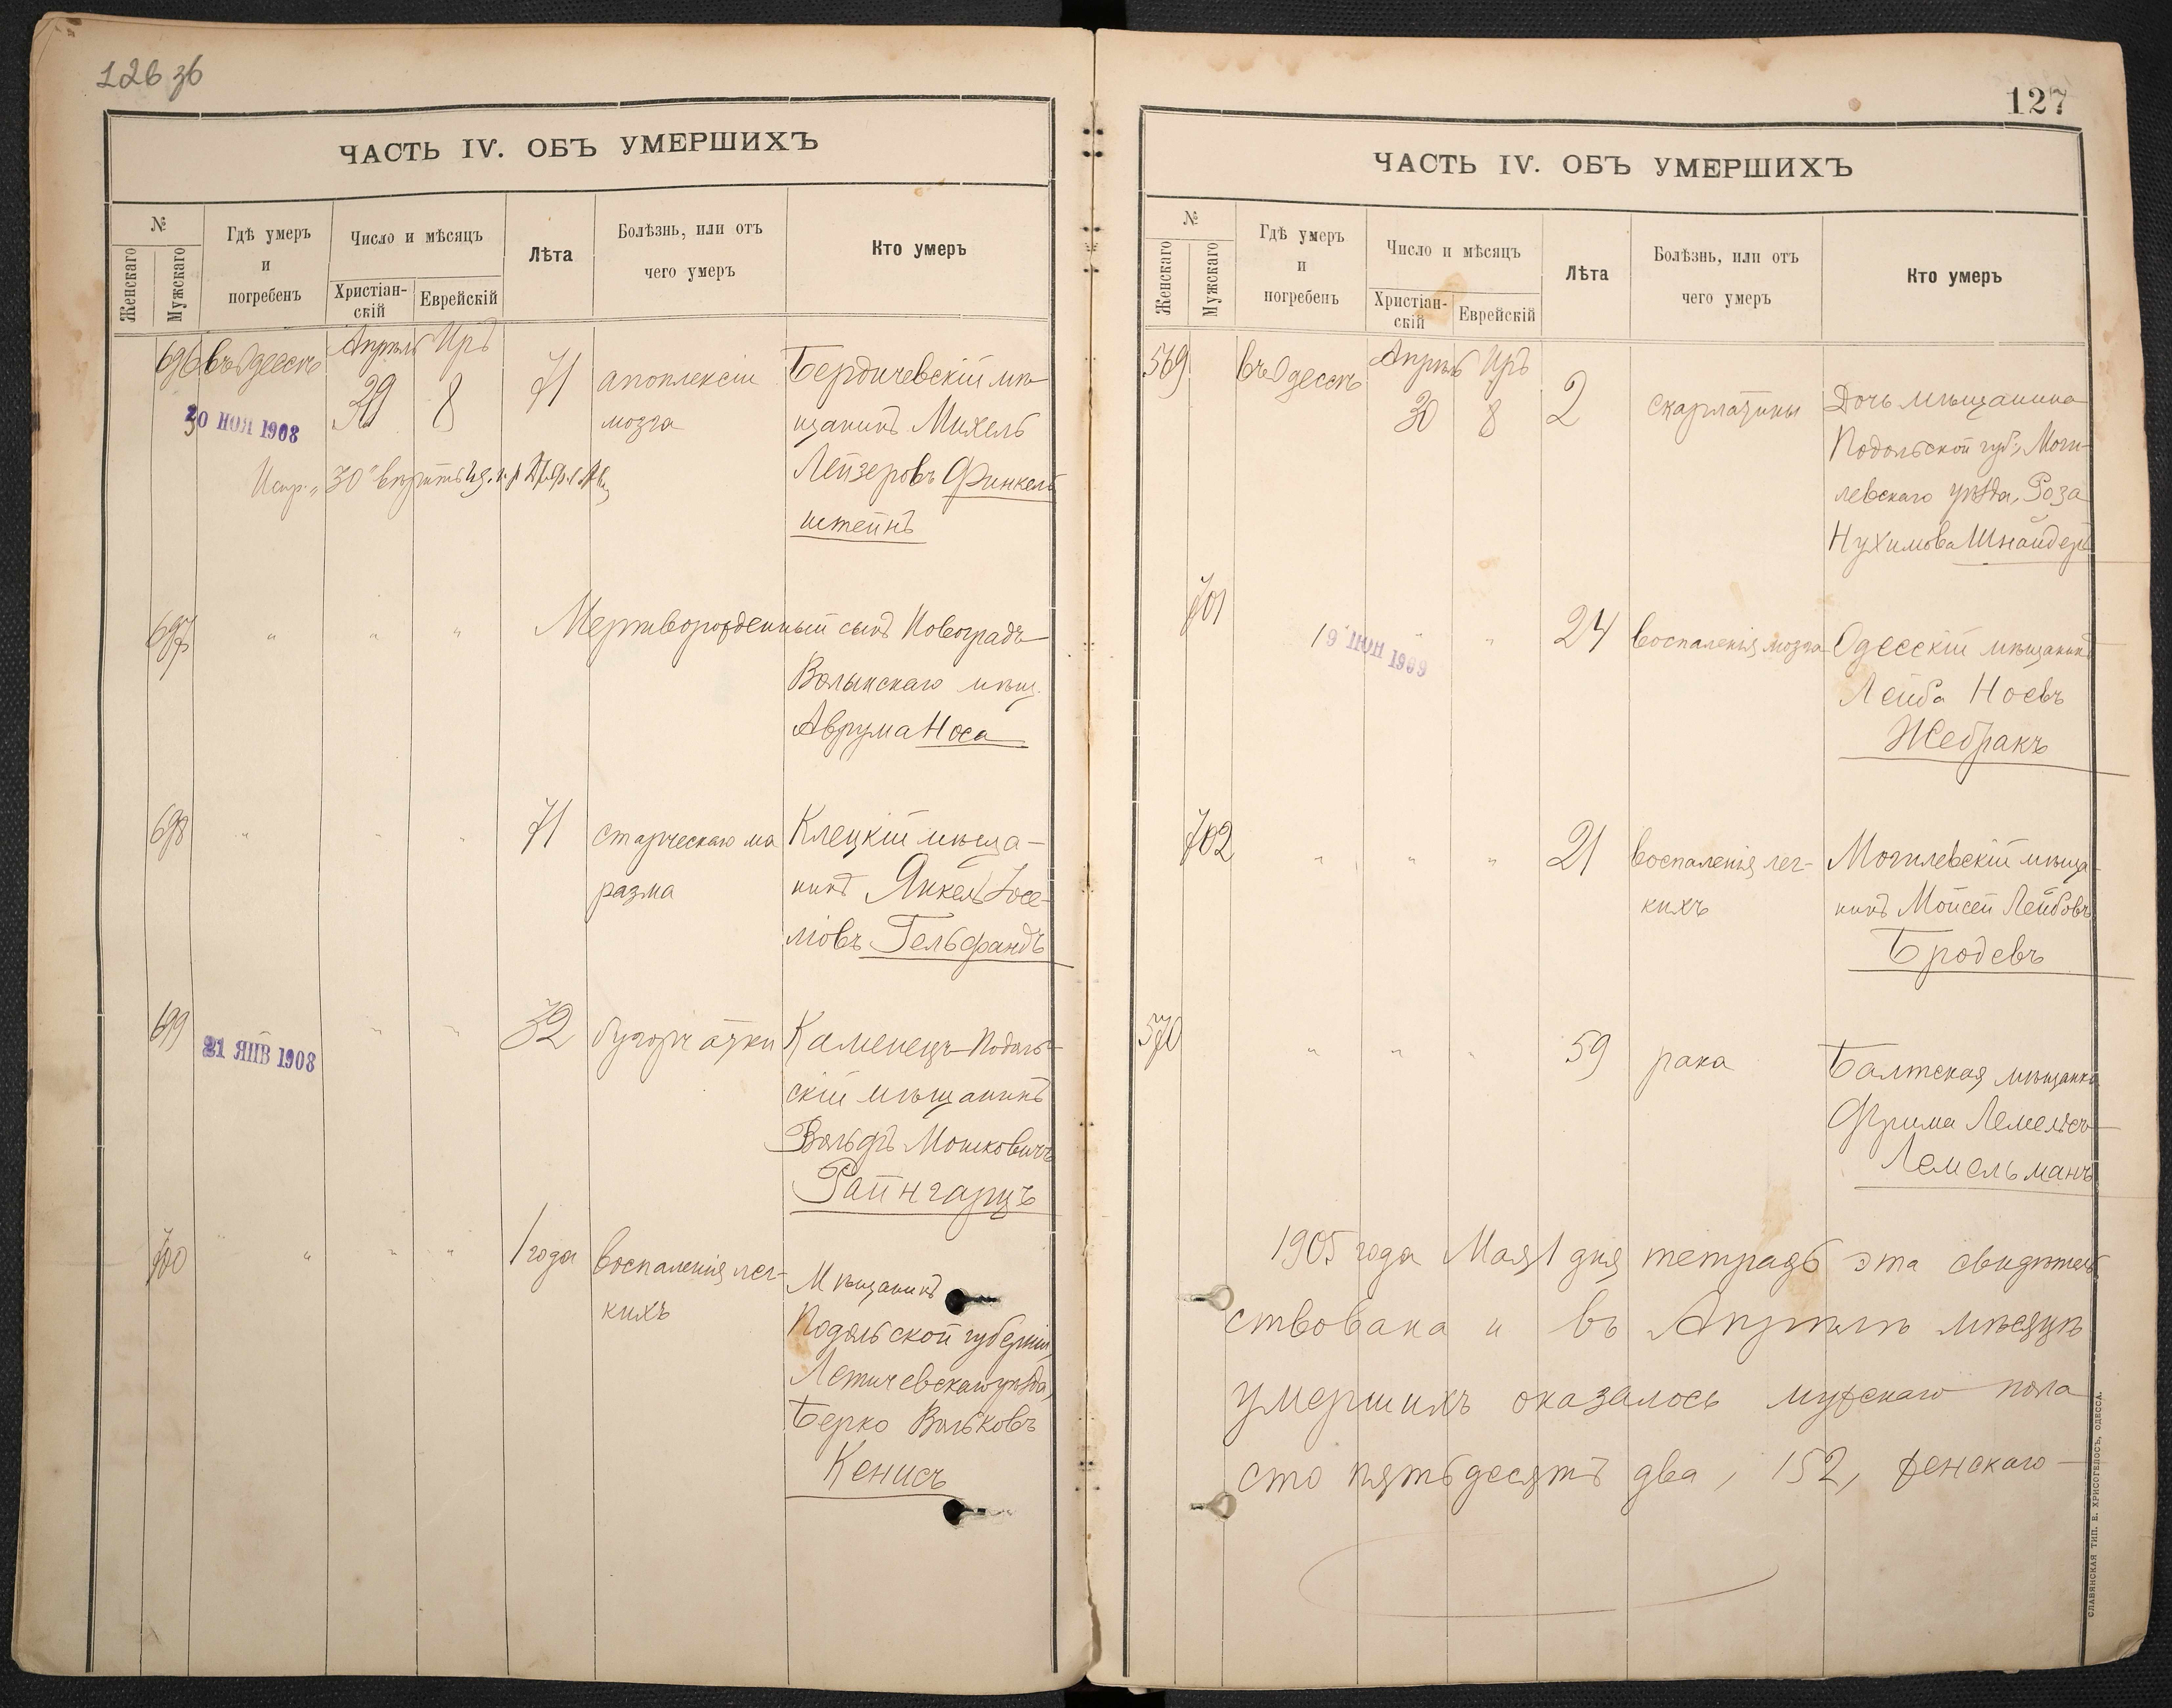 126 об
ЧАСТЬ IV. ОБЪ УМЕРШИХЪ
№
Женскаго
Мужскаго
Гдѣ умеръ
и
погребенъ
Число и мѣсяцъ
Христіан-
скій
Еврейскій
Лѣта
Болѣзнь, или отъ
чего умеръ
Кто умеръ
696 въ Одессѣ Апрѣль Иръ 71 апоплексіи Бердичевскій мѣ-
8 мозга щанинъ Михель
20 НОЯ 1908
Лейзеровъ Финкель
Испр. „30" вѣрить
штейнъ
697 " " " Мертворожденный сынъ Новоградъ
Волынскаго мѣщ.
Аврума Носа
698 " " " 71 старческаго ма Клецкій мѣща-
разма нинъ Янкель Іосе-
літовъ Гельфандъ
699 " " 32 бугорчатки Каменецъ-Подоль-
21 ЯНВ 1908
скій мѣщанинъ
Вольфъ Мошковичъ
Райнгарцъ
700 " " " 1 года воспаленія лег-
кихъ
Мѣщанинъ
Подольской губерніи,
Летичевскаго уѣзда,
Берко Вольковъ
Кенисъ
127
ЧАСТЬ IV. ОБЪ УМЕРШИХЪ
№
Женскаго
Мужскаго
Гдѣ умеръ
и
погребенъ
Число и мѣсяцъ
Христіан-
скій
Еврейскій
Лѣта
Болѣзнь, или отъ
чего умеръ
Кто умеръ
569 въ Одессѣ Апрѣль Иръ
30 8 2 скарлатины Дочь мѣщанина
Подольской губ., Моги-
левскаго уѣзда, Роза
Нухимова Шнайдеръ
701 " " 24 воспаленія мозга Одесскій мѣщанинъ
19 ІЮН 1909
Лейба Ноевъ
Жебракъ
702 " " " 21 воспаленія лег- Могилевскій мѣща-
кихъ нинъ Мойсей Лейбовъ
Бродевъ
570 " " " 59 рака Балтская мѣщанка
Фрима Лемелисъ
Лемельманъ
1905 года Мая 1 дня тетрадь эта свидѣтель
ствована и въ Апрѣлѣ мѣсяцѣ
умершихъ оказалось мужскаго пола
сто пятьдесятъ два, 152, женскаго
СЛАВЯНСКАЯ ТИП. Е. ХРИСОГЕЛОСЪ, ОДЕССА.